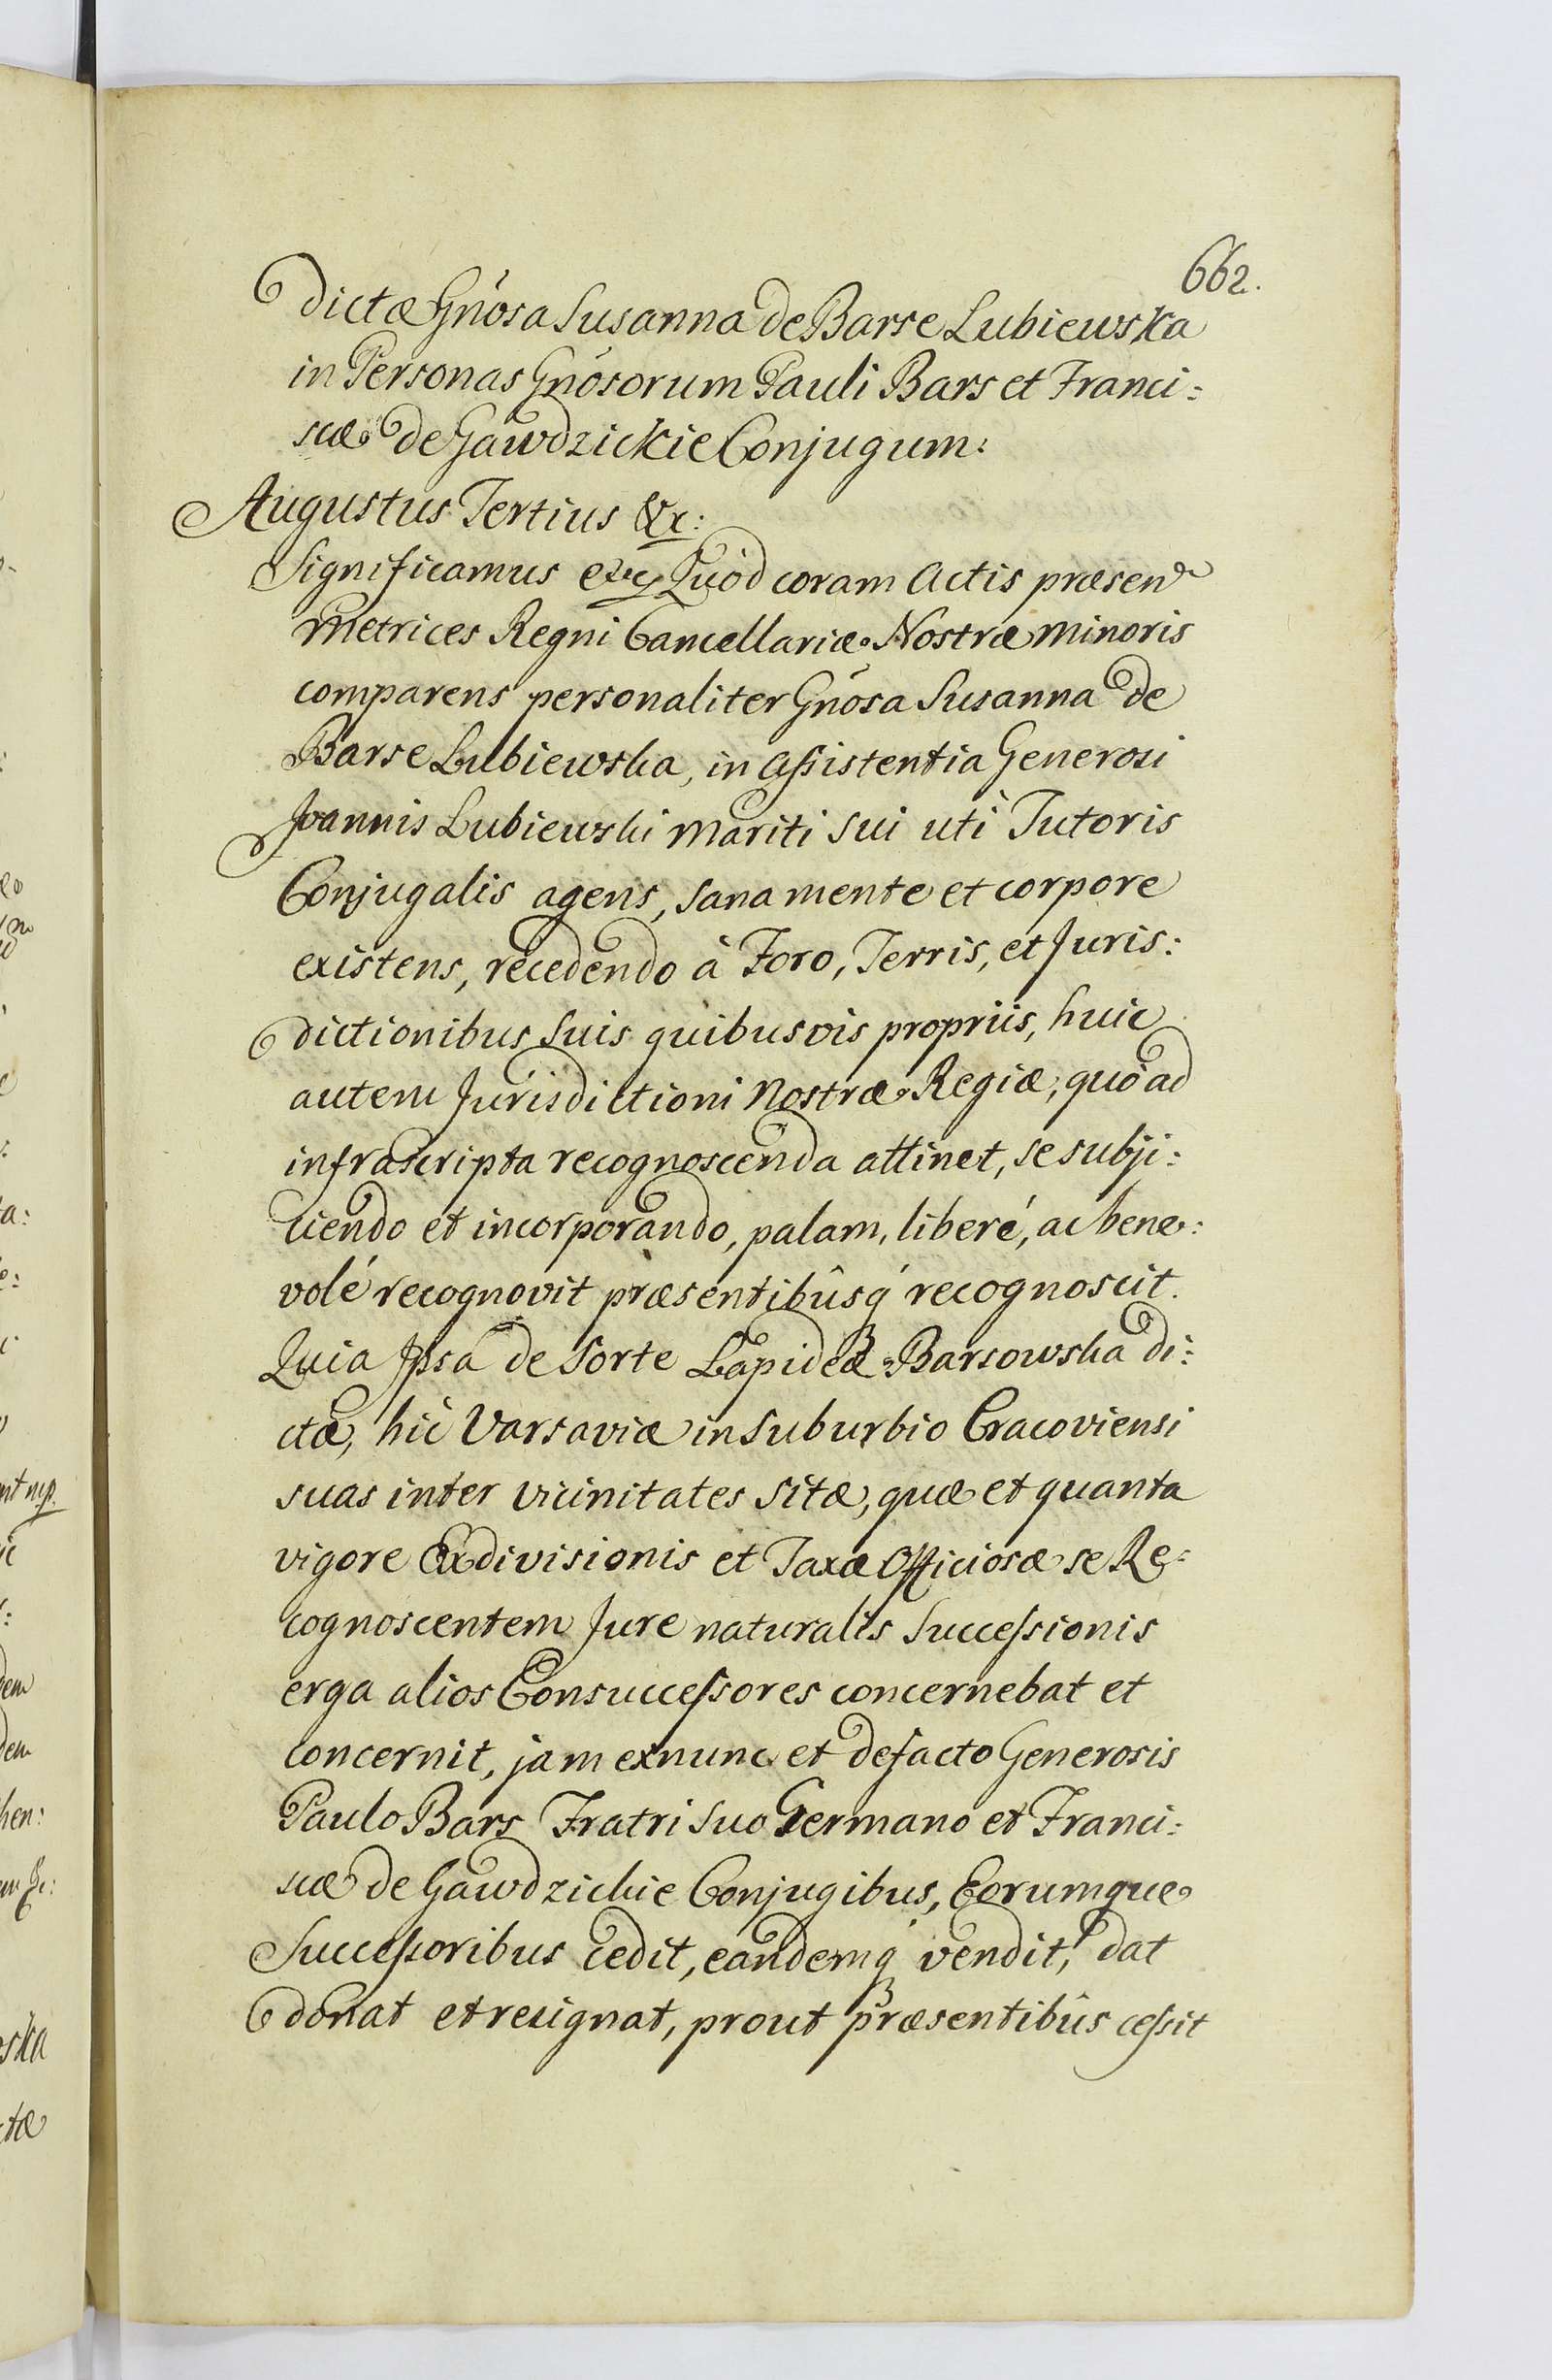 662.
dictæ Gnosa Susanna de Barse Lubiewska
in Personas Gnosorum Pauli Bars et Franci:
scæ de Gawdzickie Conjugum:
Augustus Tertius &c:
Significamus etc Quòd coram Actis præsen
Metrices Regni Cancellariæ Nostræ Minoris
comparens personaliter Gnosa Susanna de
Barse Lubiewska, in Assistentia Generosi
Joannis Lubiewski Mariti Sui utì Tutoris
Conjugalis agens, sana mente et corpore
existens, recedendo à Foro, Terris, et Juris:
dictionibus Suis quibusvis propriis, huic
autem Jurisdictioni Nostræ Regiæ, quò ad
infrascripta recognoscenda attinet, se subji:
ciendo et incorporando, palam, liberé, ac bene:
volé recognovit præsentibûsq́ recognoscit.
Quia Ipsa de Sorte Lapideæ Barsowska di:
ctæ, hìc Varsaviæ in Suburbio Cracoviensi
suas inter vicinitates Sitæ, quæ et quanta
vigore Exdivisionis et Taxæ Officiosæ se Re:
cognoscentem Jure naturalis Successionis
erga alios Consuccessores concernebat et
concernit, jam exnunc et defacto Generosis
Paulo Bars Fratri Suo Germano et Franci:
scæ de Gawdzickie Conjugibus, Eorumque
Successoribus cedit, eandemq́ vendit, dat
donat et resignat, prout præsentibûs cessit